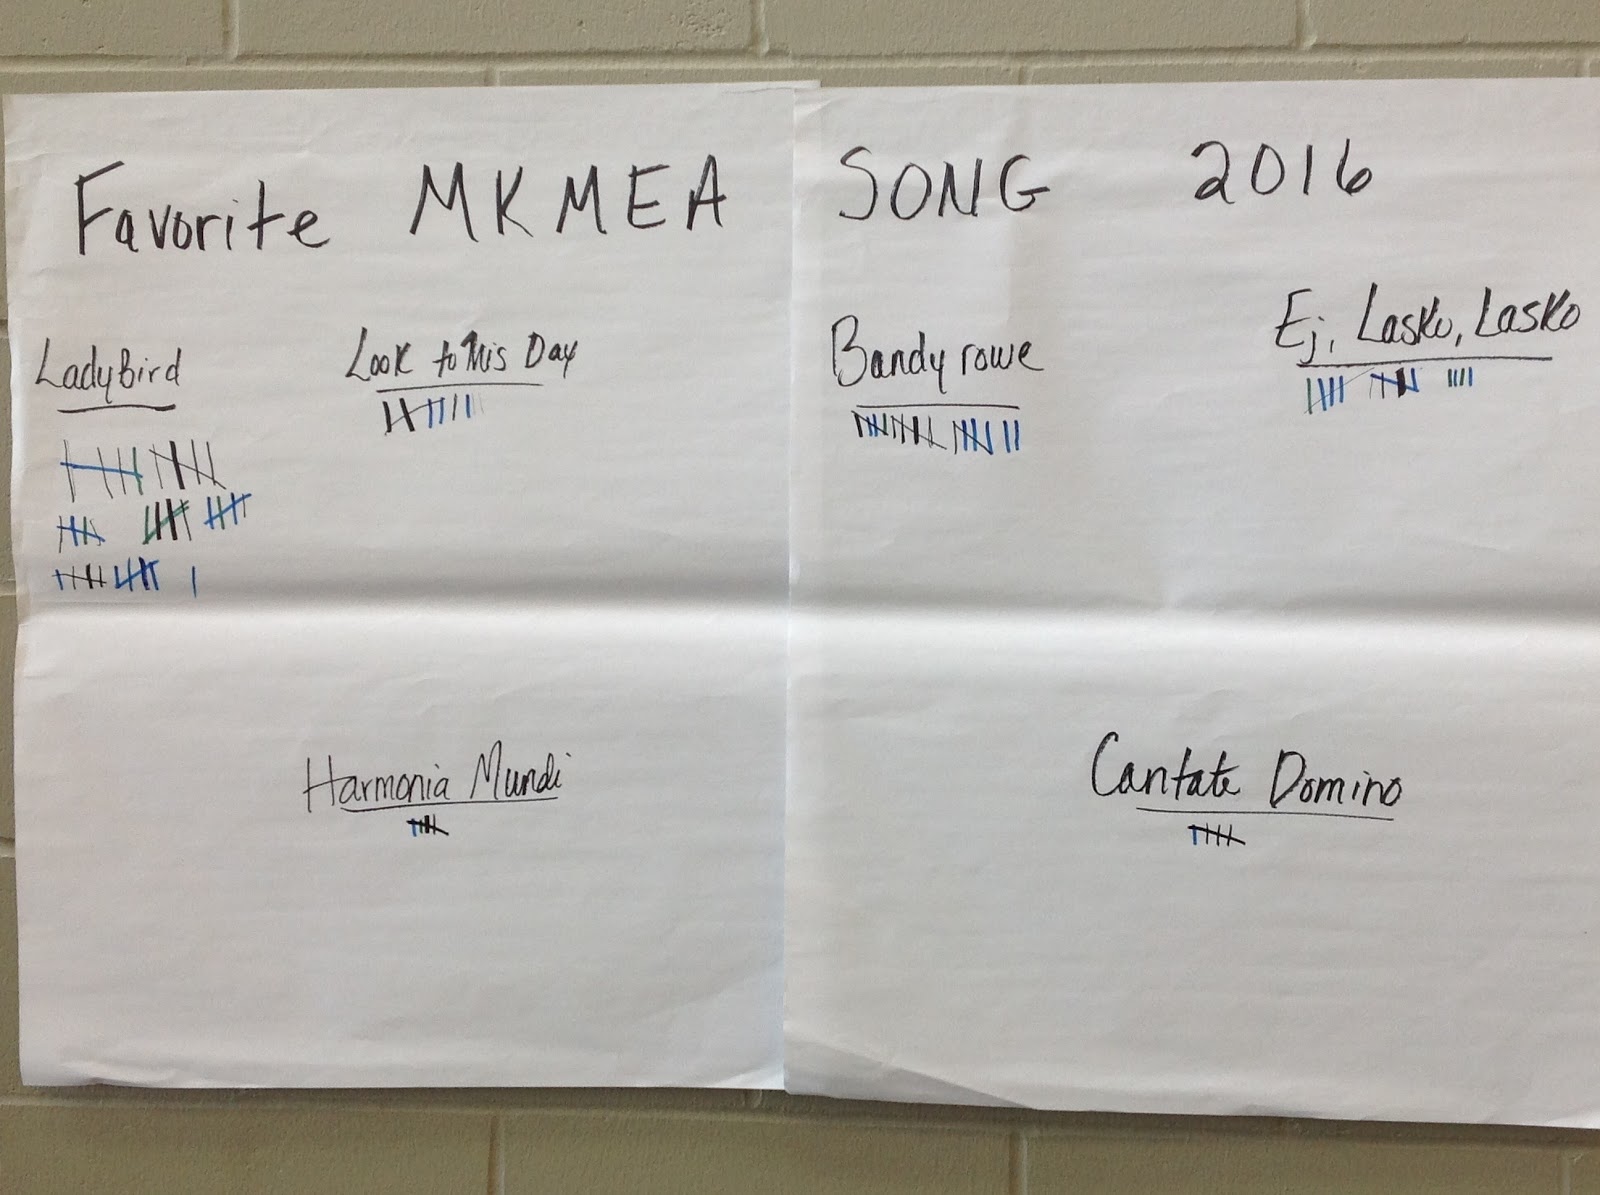 Favorite MKMEA SONG 2016
LadyBird
Look to this Day
Bandyrowe
Ej, Lasko, Lasko
Harmonia Mundi
Cantate Domino